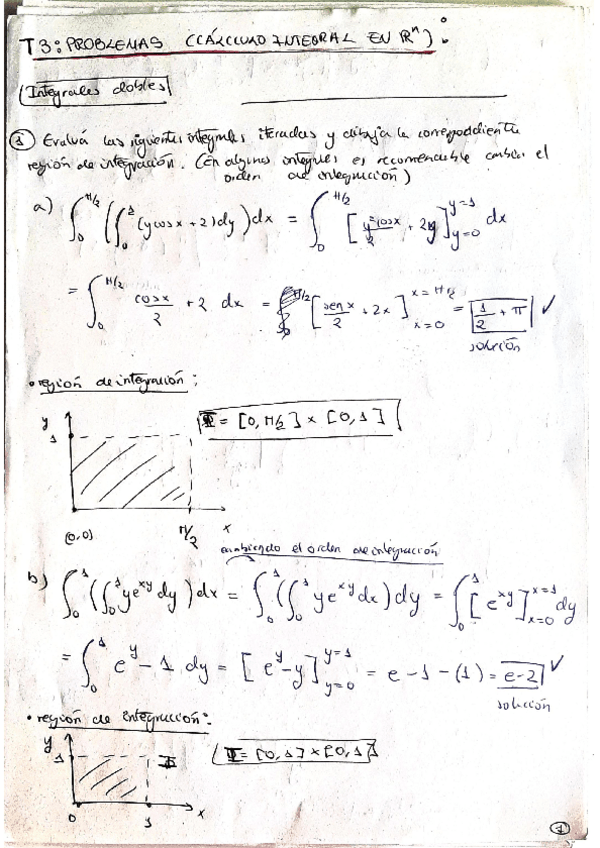 T3: PROBLEMAS (CÁLCULO INTEGRAL EN ℝⁿ):
Integrales dobles
① Evaluá las siguientes integrales iteradas y dibuja la correspondiente
región de integración. (En algunas integrales es recomendable cambiar el
orden de integración)
a) ∫₀^{π/2} (∫₀^1 (y cos x + 2) dy) dx = ∫₀^{π/2} [y² cos x / 2 + 2y]_{y=0}^{y=1} dx
= ∫₀^{π/2} cos x / 2 + 2 dx = [sen x / 2 + 2x]_{x=0}^{x=π/2} = 1/2 + π ✓
solución
• región de integración:
y
1
Φ = [0, π/2] × [0, 1]
(0,0)
π/2
x
cambiando el orden de integración
b) ∫₀^1 (∫₀^1 y e^{xy} dy) dx = ∫₀^1 (∫₀^1 y e^{xy} dx) dy = ∫₀^1 [e^{xy}]_{x=0}^{x=1} dy
= ∫₀^1 e^y - 1 dy = [e^y - y]_{y=0}^{y=1} = e - 1 - (1) = e-2 ✓
solución
• región de integración:
y
1
Φ
Φ = [0, 1] × [0, 1]
0
1
x
1